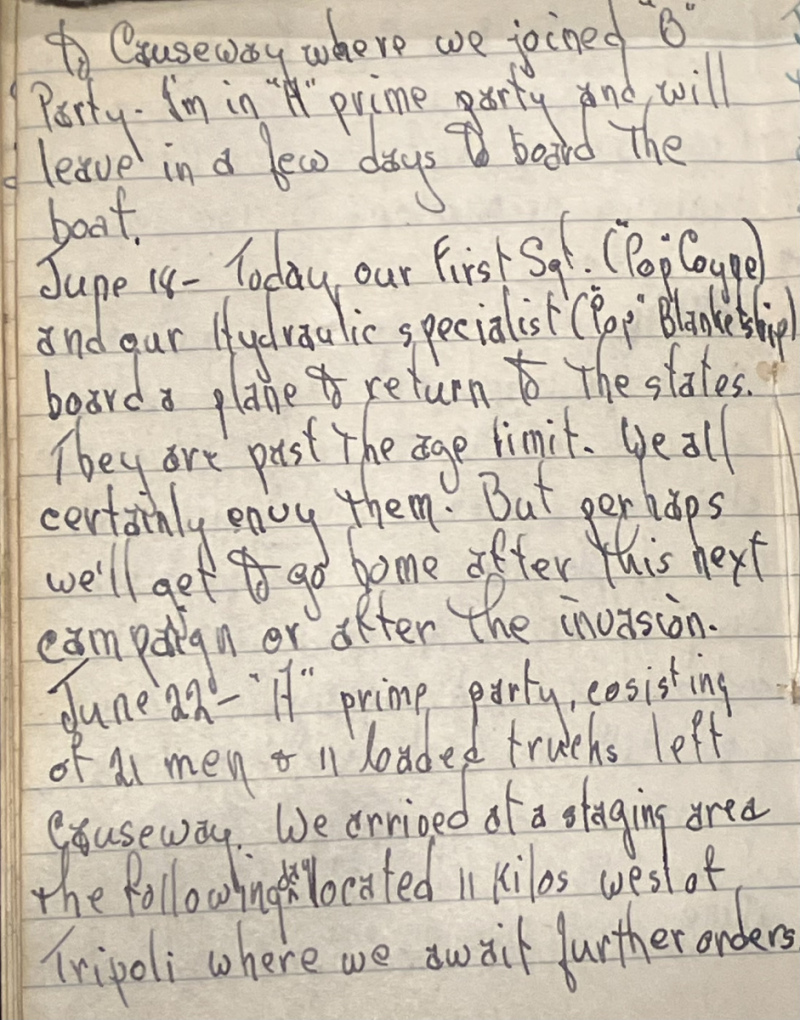 to Causeway where we joined "B"
Party - I'm in "A" prime party and will
leave in a few days to board the
boat.
June 18 - Today our First Sgt. ("Pop" Coyne)
and our Hydraulic specialist ("Pop" Blankeship)
board a plane to return to the states.
They are past the age limit. We all
certainly envy them. But perhaps
we'll get to go home after this next
campaign or after the invasion.
June 22 - "A" prime party, cosisting
of 21 men & 11 loaded trucks left
Causeway. We arrived at a staging area
the following day located 11 Kilos west of
Tripoli where we await further orders